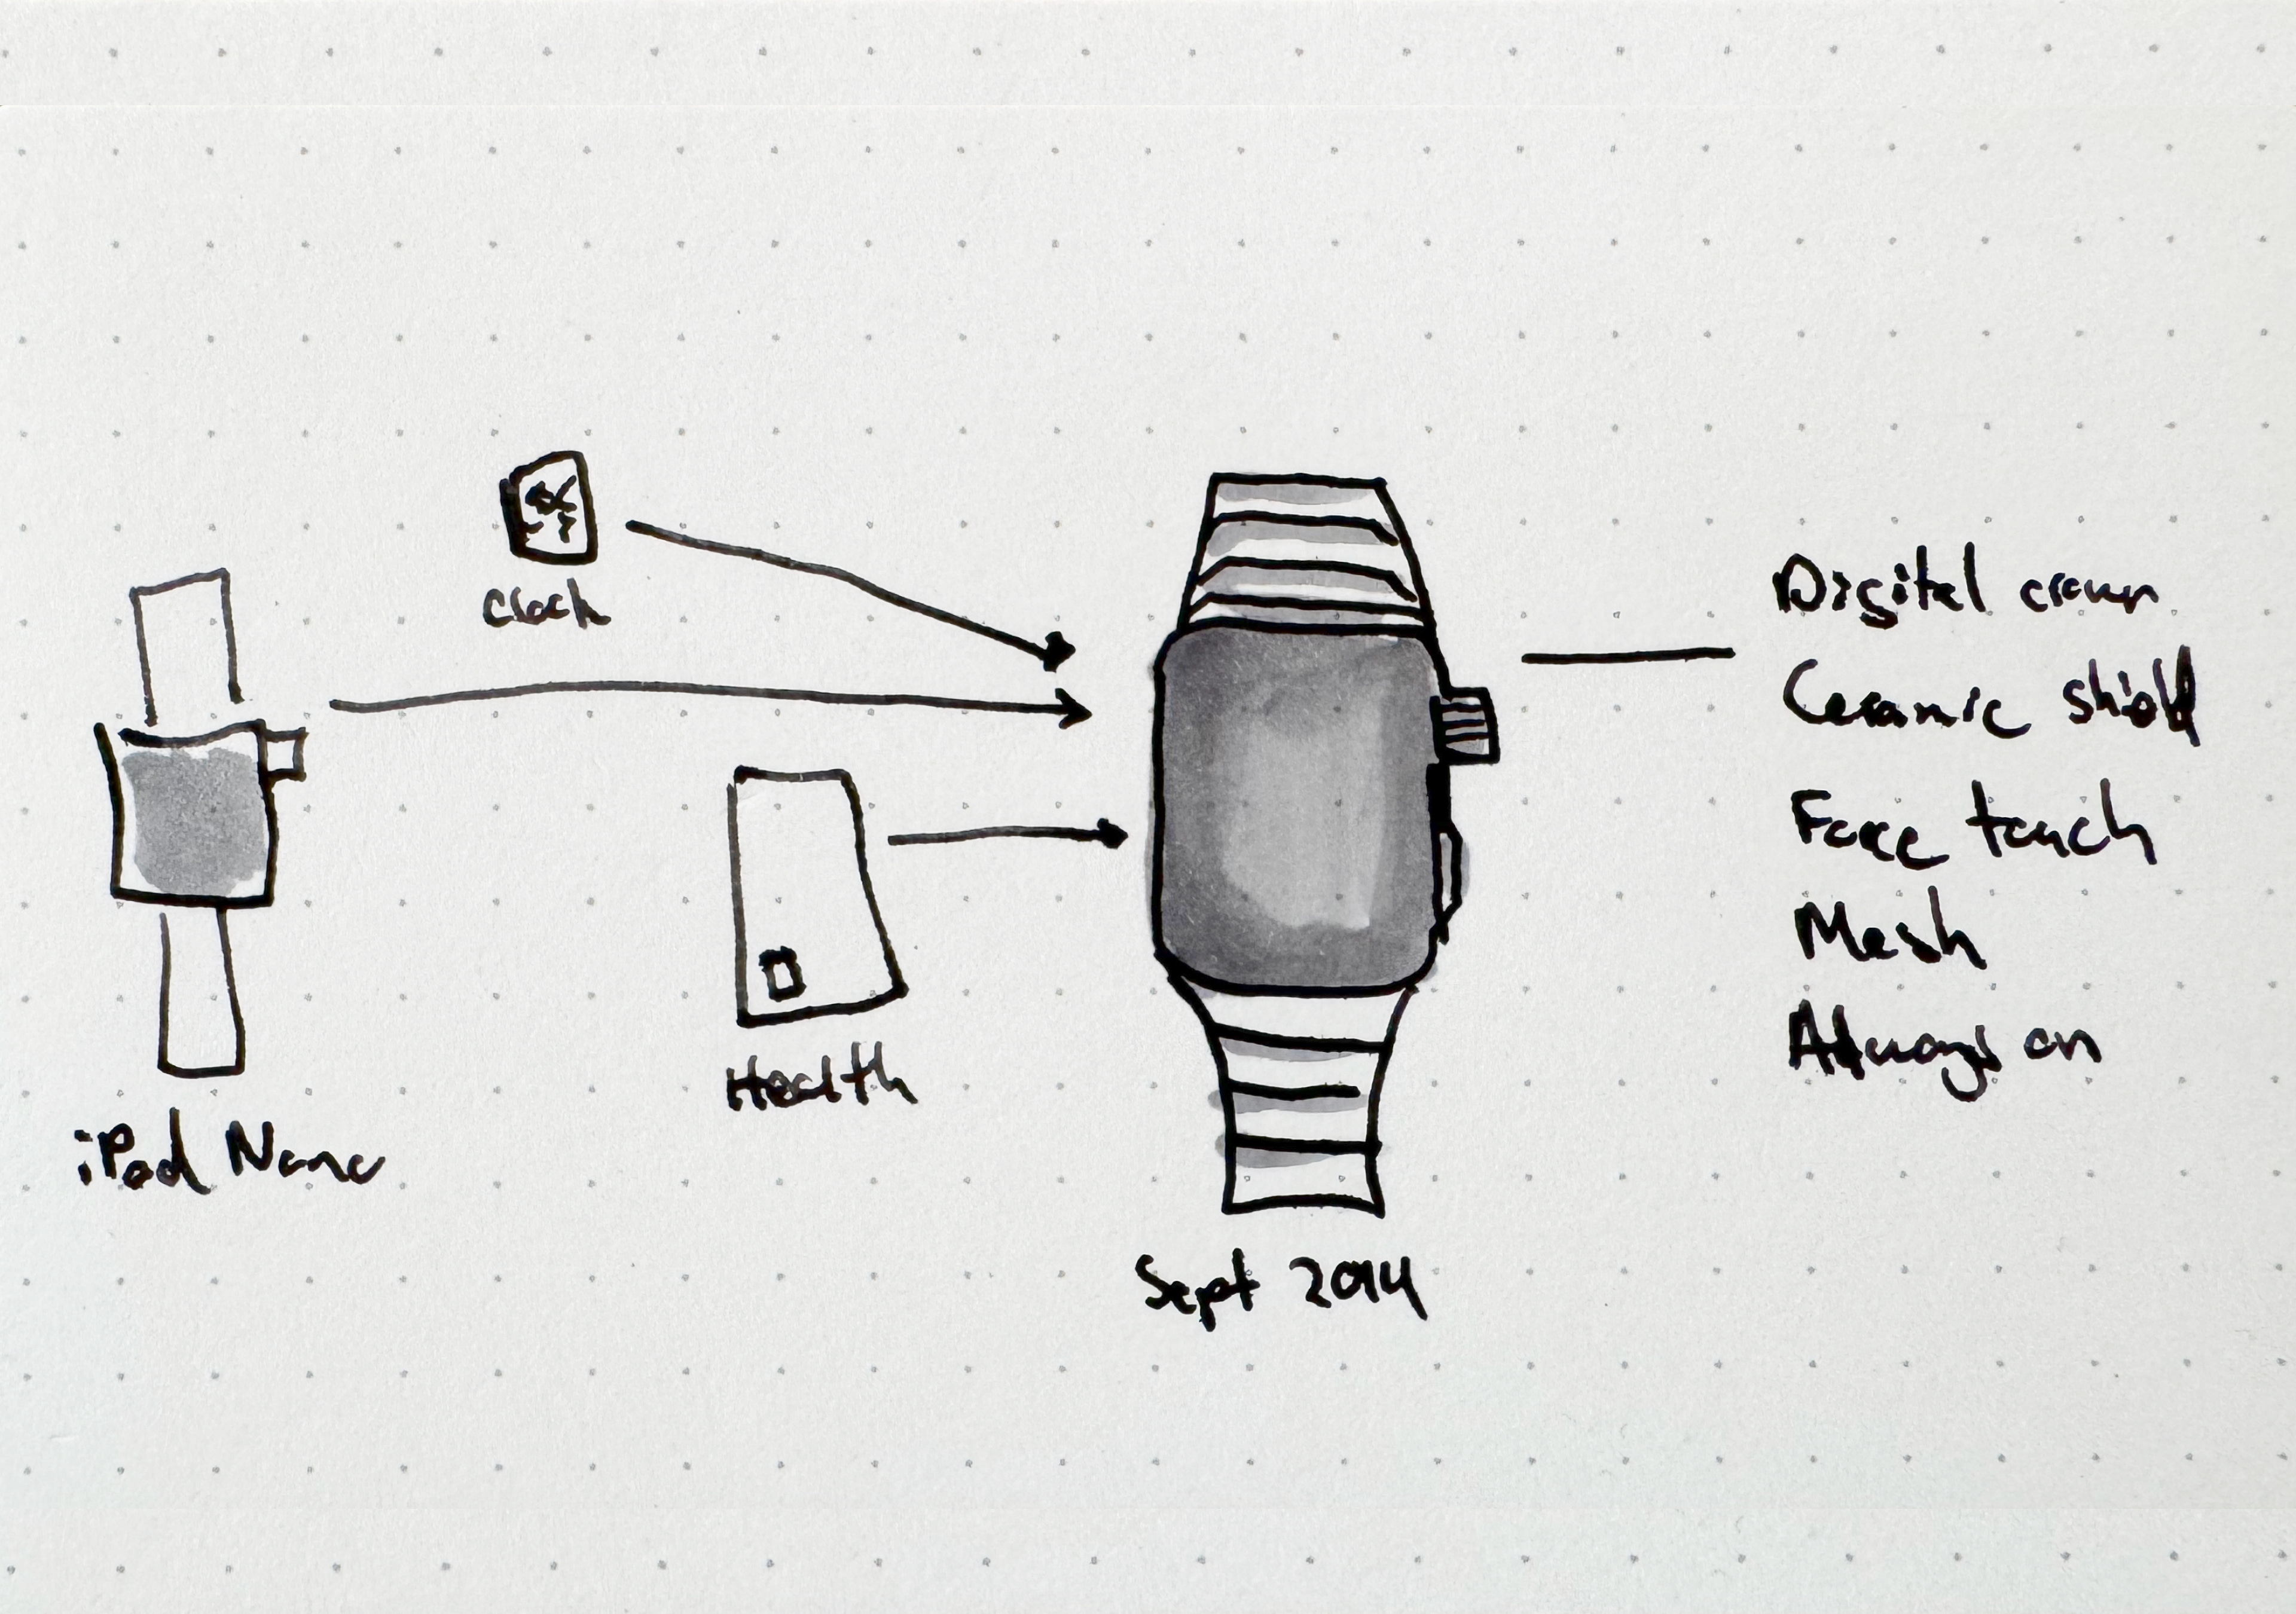 Clock
iPod Nano
Health
Sept 2014
Digital crown
Ceramic shield
Force touch
Mesh
Always on